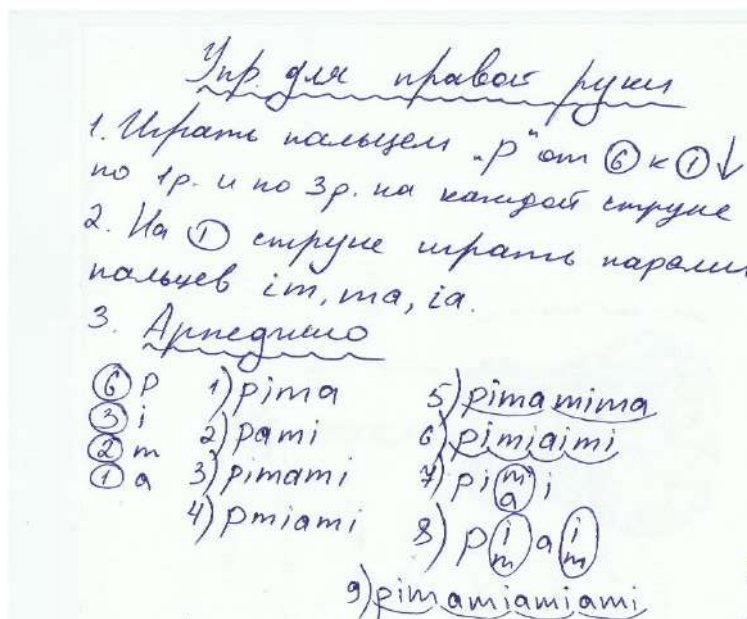 Упр. для правой руки
1. Играть пальцем „p“ от ⑥ к ① ↓
по 1р. и по 3р. на каждой струне
2. На ① струне играть парами
пальцев im, ma, ia.
3. Арпеджио
⑥ p 1) pima 5) pimamima
③ i 2) pami 6) pimiaimi
② m 3) pimami 7) pi(m a)i
① a 4) pmiami 8) p(i m)a(i m)
9) pimamiamiami